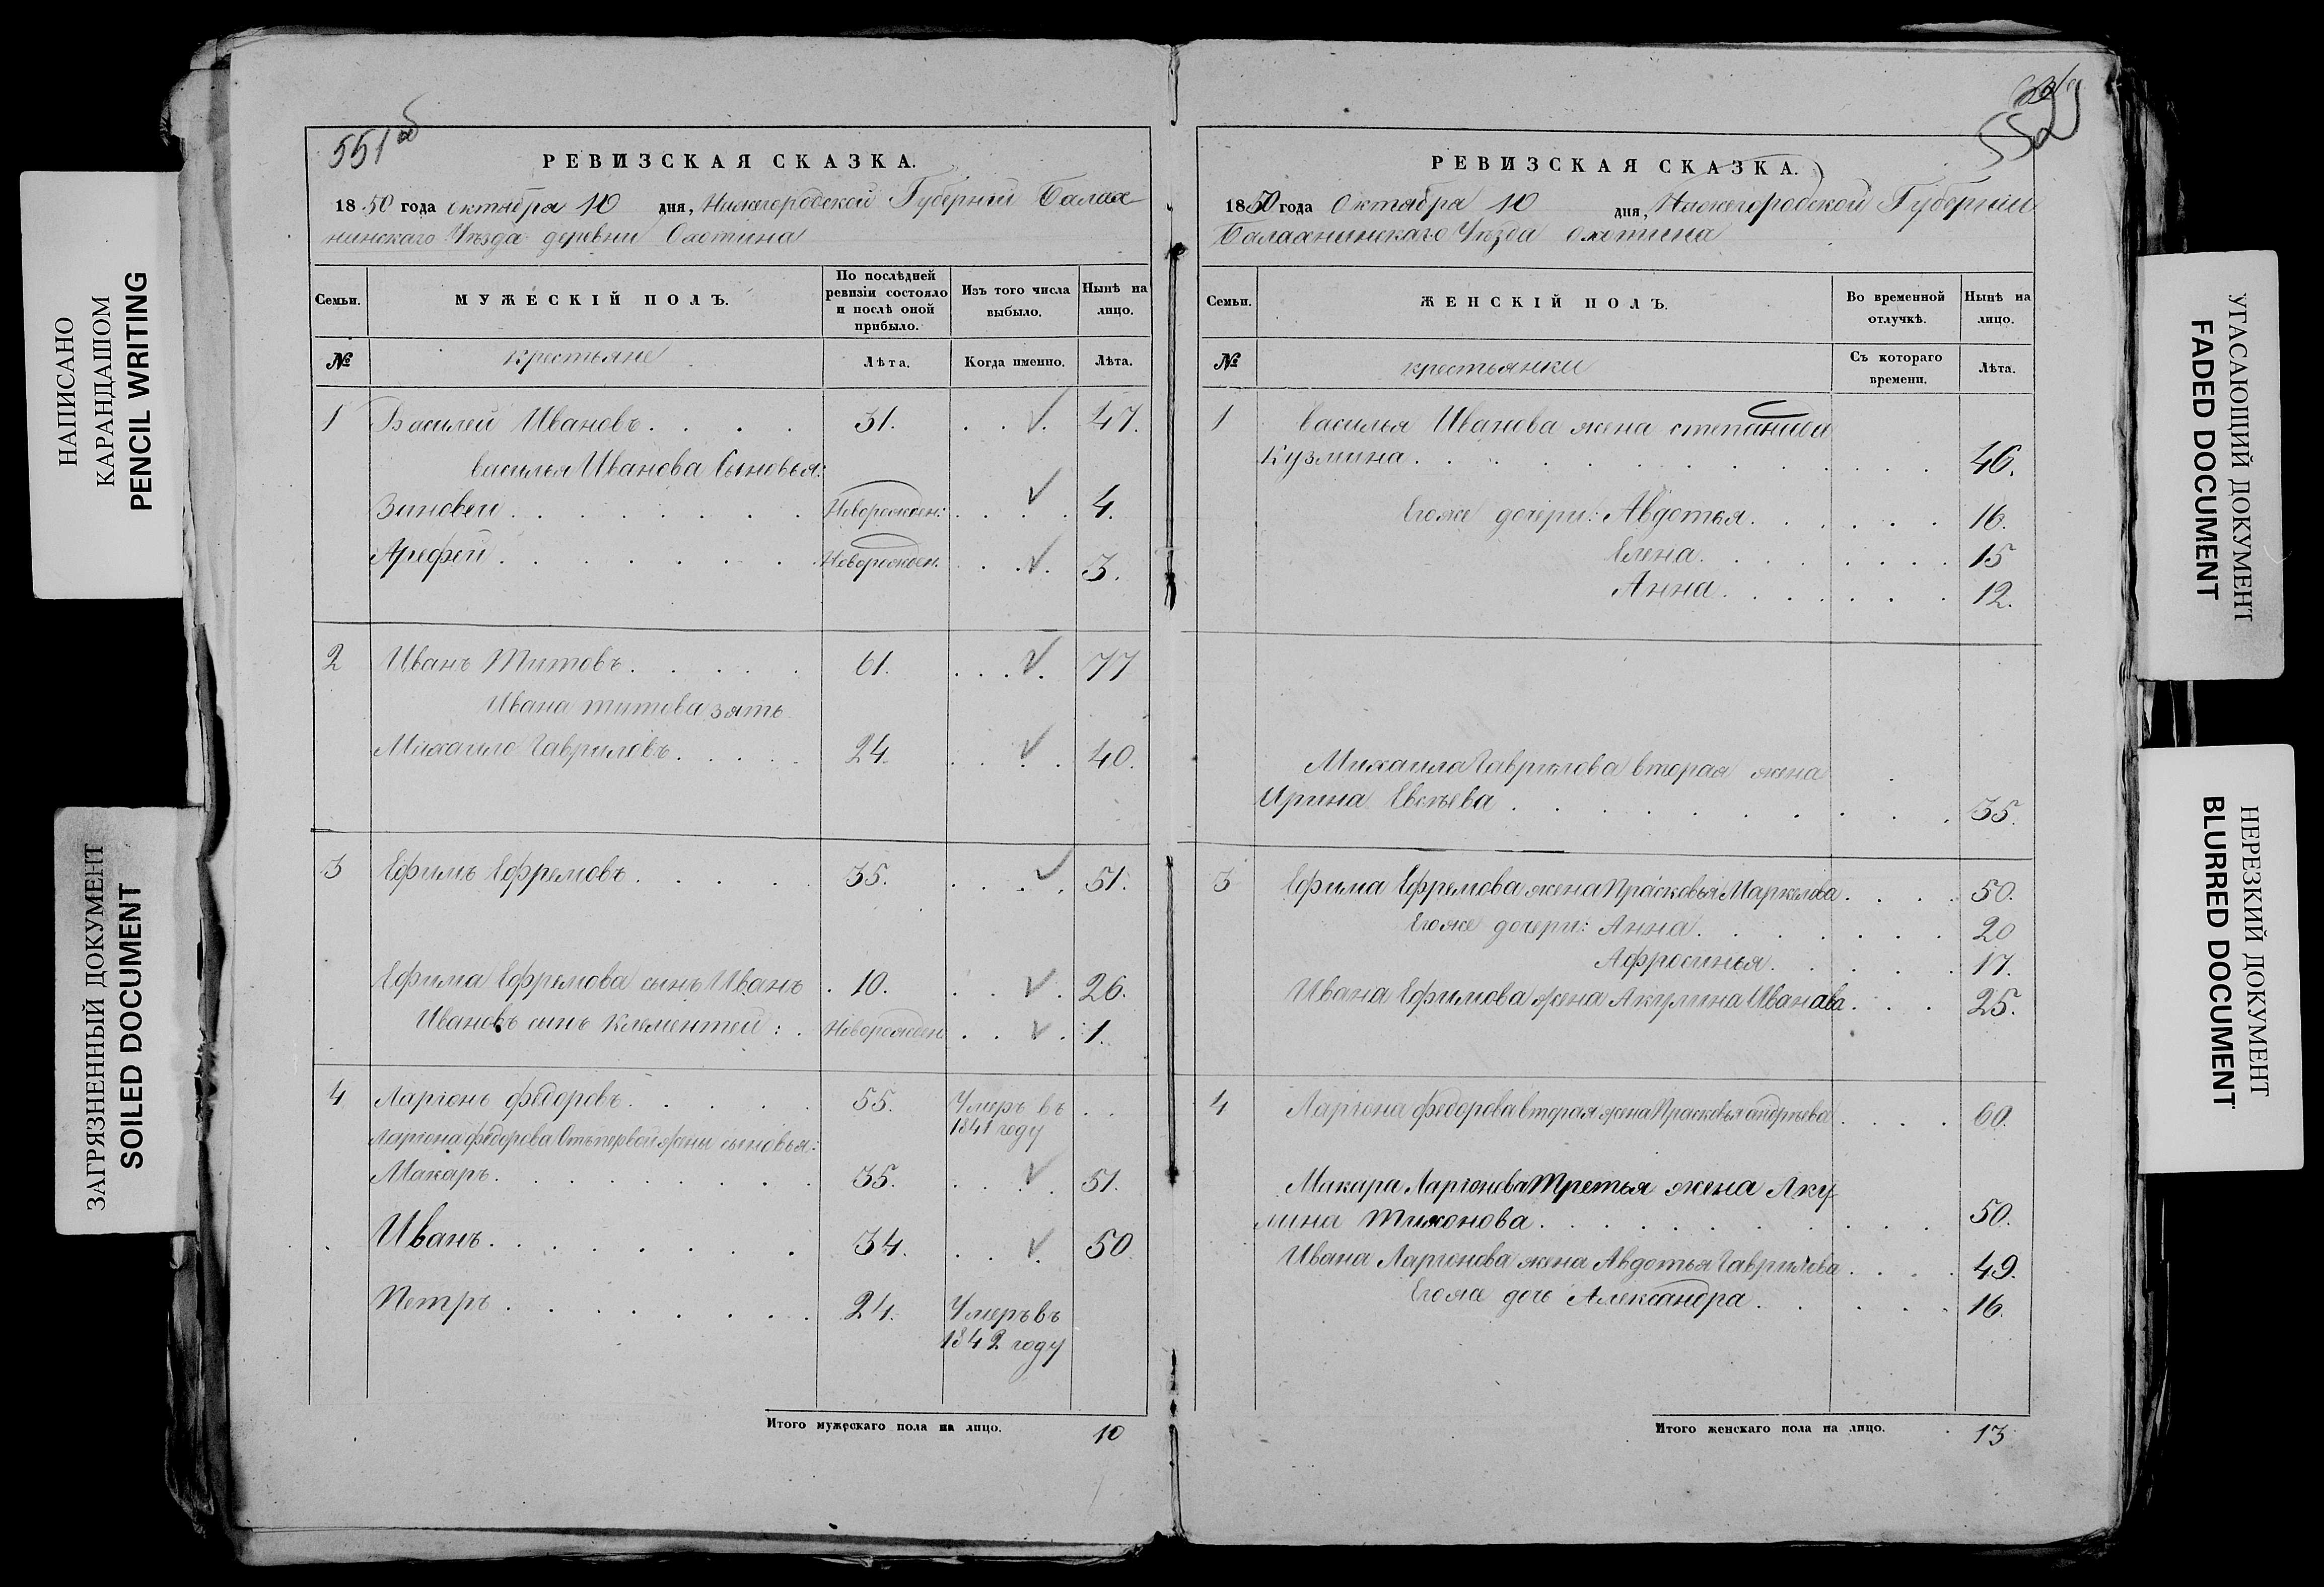 НАПИСАНО
КАРАНДАШОМ
PENCIL WRITING
ЗАГРЯЗНЕННЫЙ ДОКУМЕНТ
SOILED DOCUMENT
551 об
РЕВИЗСКАЯ СКАЗКА.
1850 года октября 10 дня, Нижегородской Губернии Балах
нинскаго Уѣзда деревни Охотина
Семьи. МУЖЕСКІЙ ПОЛЪ. По послѣдней ревизіи состояло и послѣ оной прибыло. Изъ того числа выбыло. Нынѣ на лицо.
№ крестьяне Лѣта. Когда именно. Лѣта.
1 Василей Ивановъ. 31. 47.
Василья Иванова Сыновья:
Зиновей Новорожден: 4.
Арефей Новорожден. 3.
2 Иванъ Титовъ. 61. 77
Ивана титова зять
Михаило Гавриловъ. 24. 40.
3 Ефимъ Ефремовъ. 35. 51.
Ефима Ефремова сынъ Иванъ 10. 26.
Ивановъ сынъ Клементей: Новорожден 1.
4 Ларіонъ федоровъ. 55. Умеръ въ
1841 году
Ларіона федорова Отъ первой жены сыновья:
Макаръ. 35. 51.
Иванъ. 34. 50
Петръ. 24. Умеръ въ
1842 году
Итого мужескаго пола на лицо. 10
552
РЕВИЗСКАЯ СКАЗКА.
1850 года Октября 10 дня, Нижегородской Губерніи
Балахнинскаго Уѣзда Охотина
Семьи. ЖЕНСКІЙ ПОЛЪ. Во временной отлучкѣ. Нынѣ на лицо.
№ крестьянки Съ котораго времени. Лѣта.
1 Василья Иванова жена степанида
Кузмина. 46.
Егоже дочери: Авдотья. 16.
Елена. 15
Анна. 12.
Михаила Гаврилова вторая жена
Ирина Евсѣева 35.
3 Ефима Ефремова жена Прасковья Маркелова 50.
Егоже дочери: Анна. 20
Афросинья. 17.
Ивана Ефимова жена Акулина Иванова 25.
4 Ларіона федорова вторая жена Прасковья андрѣева 60.
Макара Ларіонова Третья жена Аку
лина Тихонова. 50.
Ивана Ларіонова жена Авдотья Гаврилова 49.
Егоже дочь Александра. 16.
Итого женскаго пола на лицо. 13
УГАСАЮЩИЙ ДОКУМЕНТ
FADED DOCUMENT
НЕРЕЗКИЙ ДОКУМЕНТ
BLURRED DOCUMENT